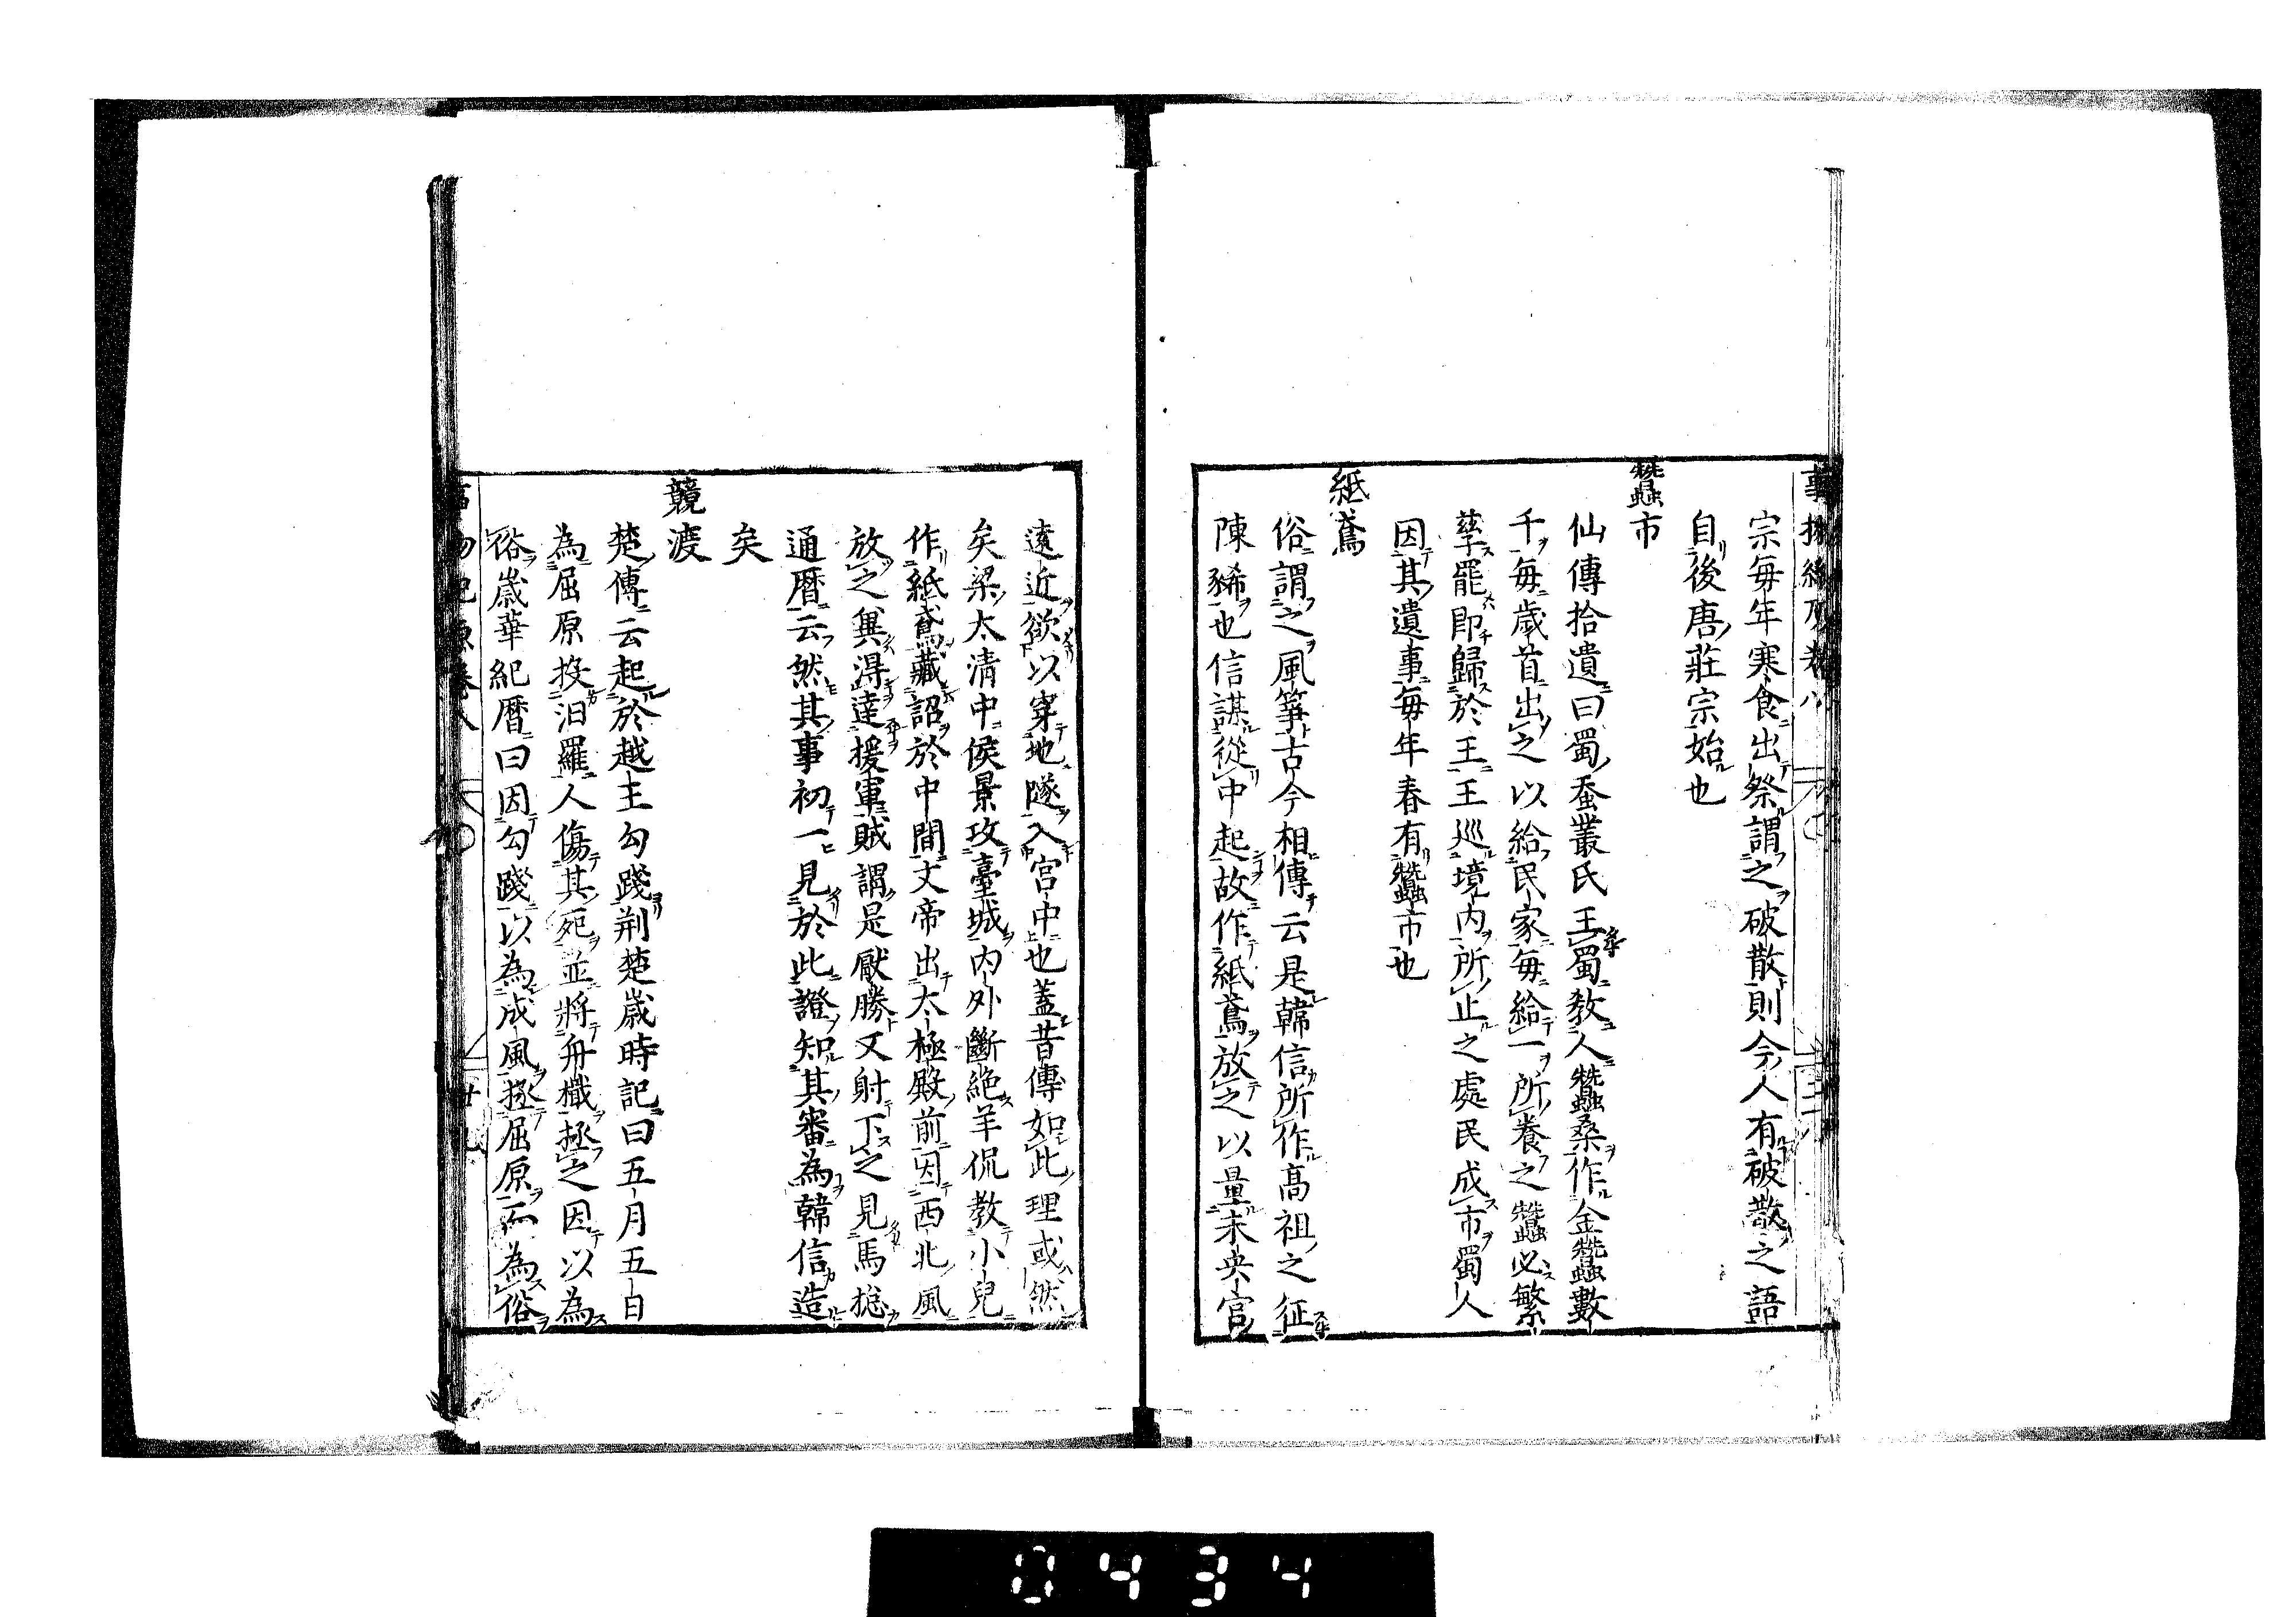 宗毎年寒食出祭謂之破散則今人有破散之語
自後唐莊宗始也
蠶市
仙傳拾遺曰蜀蚕叢氏王蜀教人蠶桑作金蠶數
千毎歳首出之以給民家毎給一所養之蠶必繁
孳罷即歸於王王巡境内所止之處民成市蜀人
因其遺事毎年春有蠶市也
紙鳶
俗謂之風筝古今相傳云是韓信所作高祖之征
陳豨也信謀從中起故作紙鳶放之以量未央宮
遠近欲以穿地隧入宮中也蓋昔傳如此理或然
矣梁太清中侯景攻臺城内外斷絶羊侃教小兒
作紙鳶藏詔於中間文帝出太極殿前因西北風
放之兾得達援軍賊謂是厭勝又射下之見馬摠
通暦云然其事初一見於此證知其審為韓信造
矣
競渡
楚傳云起於越王勾踐荆楚歳時記曰五月五日
為屈原投汨羅人傷其死並將舟檝拯之因以為
俗歳華紀暦曰因勾踐以為成風拯屈原而為俗
0434